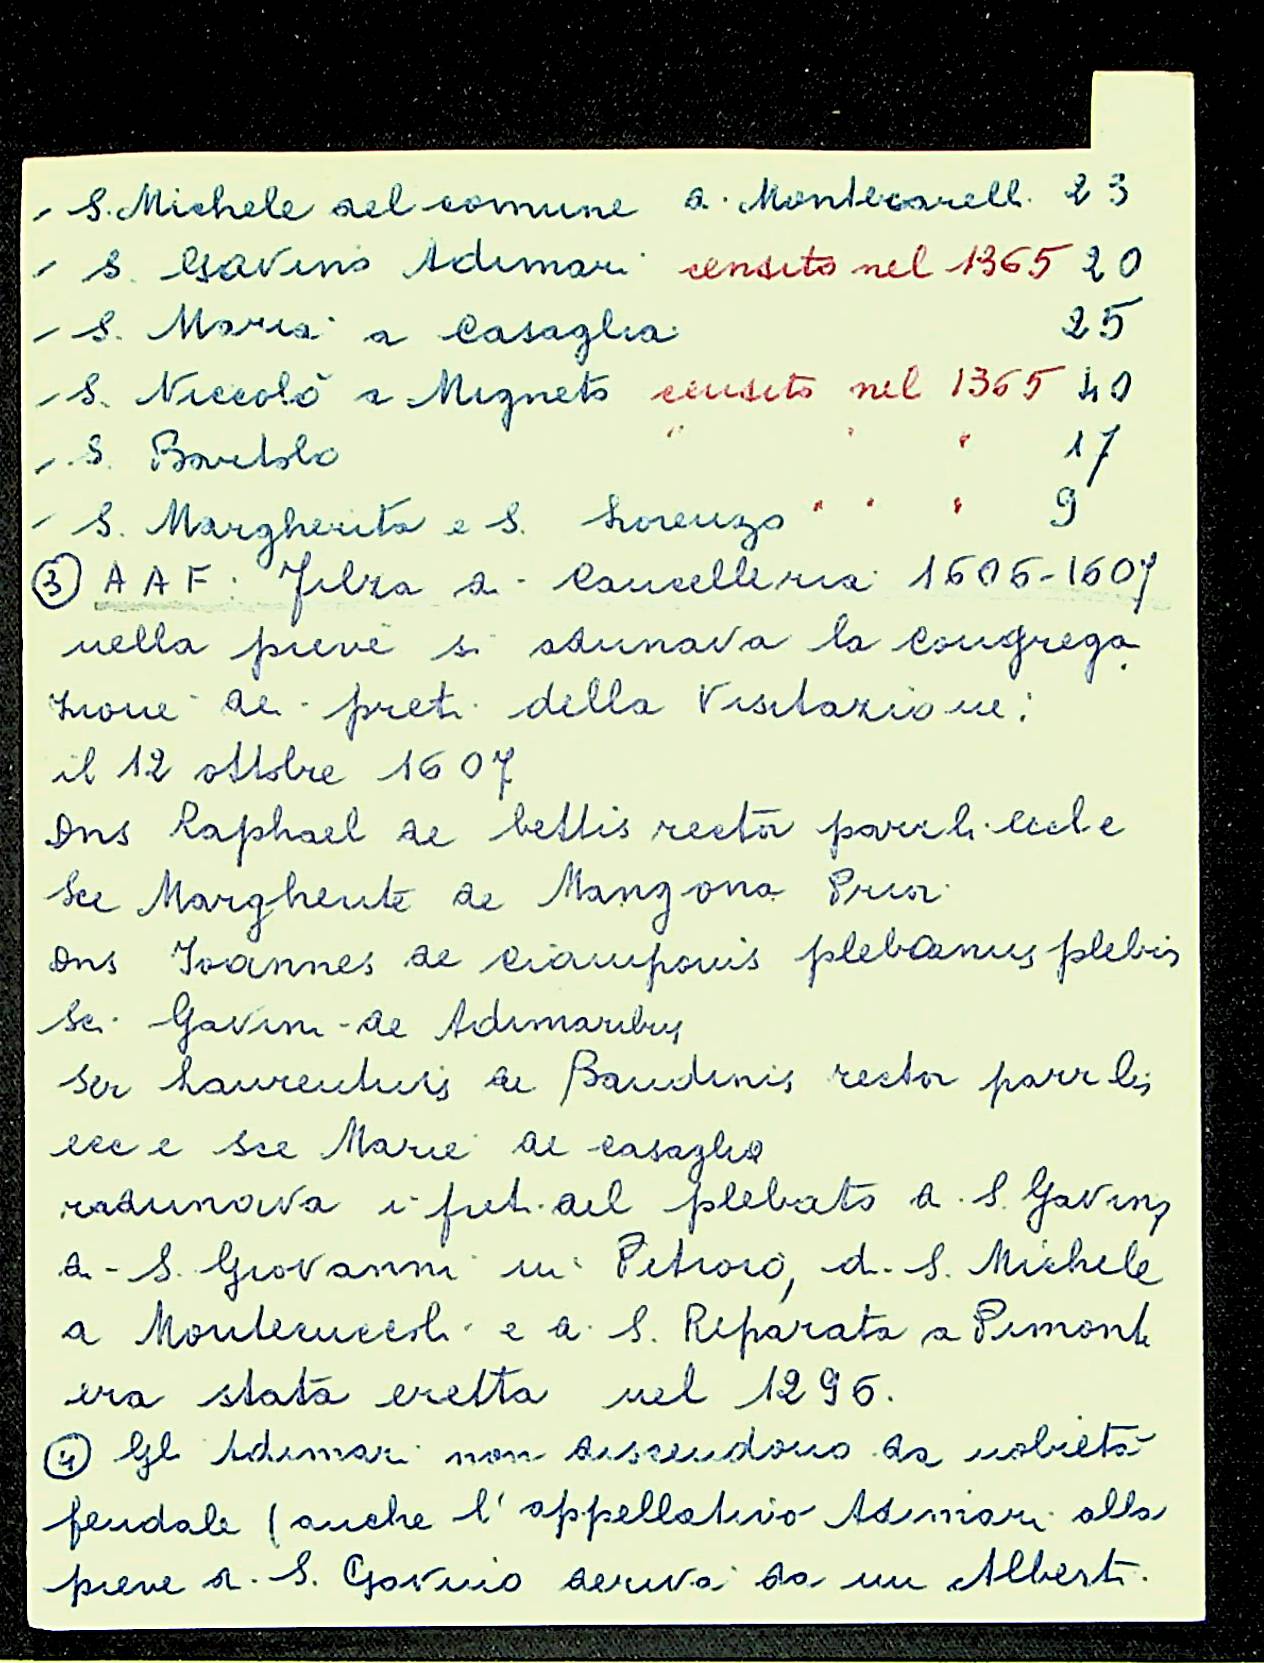 - S. Michele del comune di Montecarelli 23
- S. Gavino Adimari censito nel 1365 20
- S. Maria a Casaglia 25
- S. Niccolò a Migneto censito nel 1365 40
- S. Bartolo " " " 17
- S. Margherita e S. Lorenzo " " " 9
③ AAF: Filza di Cancelleria 1606-1607
nella pieve si adunava la congrega
zione dei preti della Visitazione:
il 12 ottobre 1607
Dns Raphael de bettis rector parrli. eccl e
Sce Margherite de Mangona Prior
Dns Joannes de Ciamponis plebanus plebis
Sci Gavini de Adimaribus
Ser Laurentius de Baudinis rector parrlis
ecc e Sce Marie de Casaglia
radunava i preti del plebato di S. Gavino,
di S. Giovanni in Petroio, di S. Michele
a Montecuccoli e di S. Reparata a Pimonte
era stata eretta nel 1296.
④ Gli Adimari non discendono da nobiltà
feudale (anche l'appellativo Adimari alla
pieve di S. Gavino deriva da un Alberti.